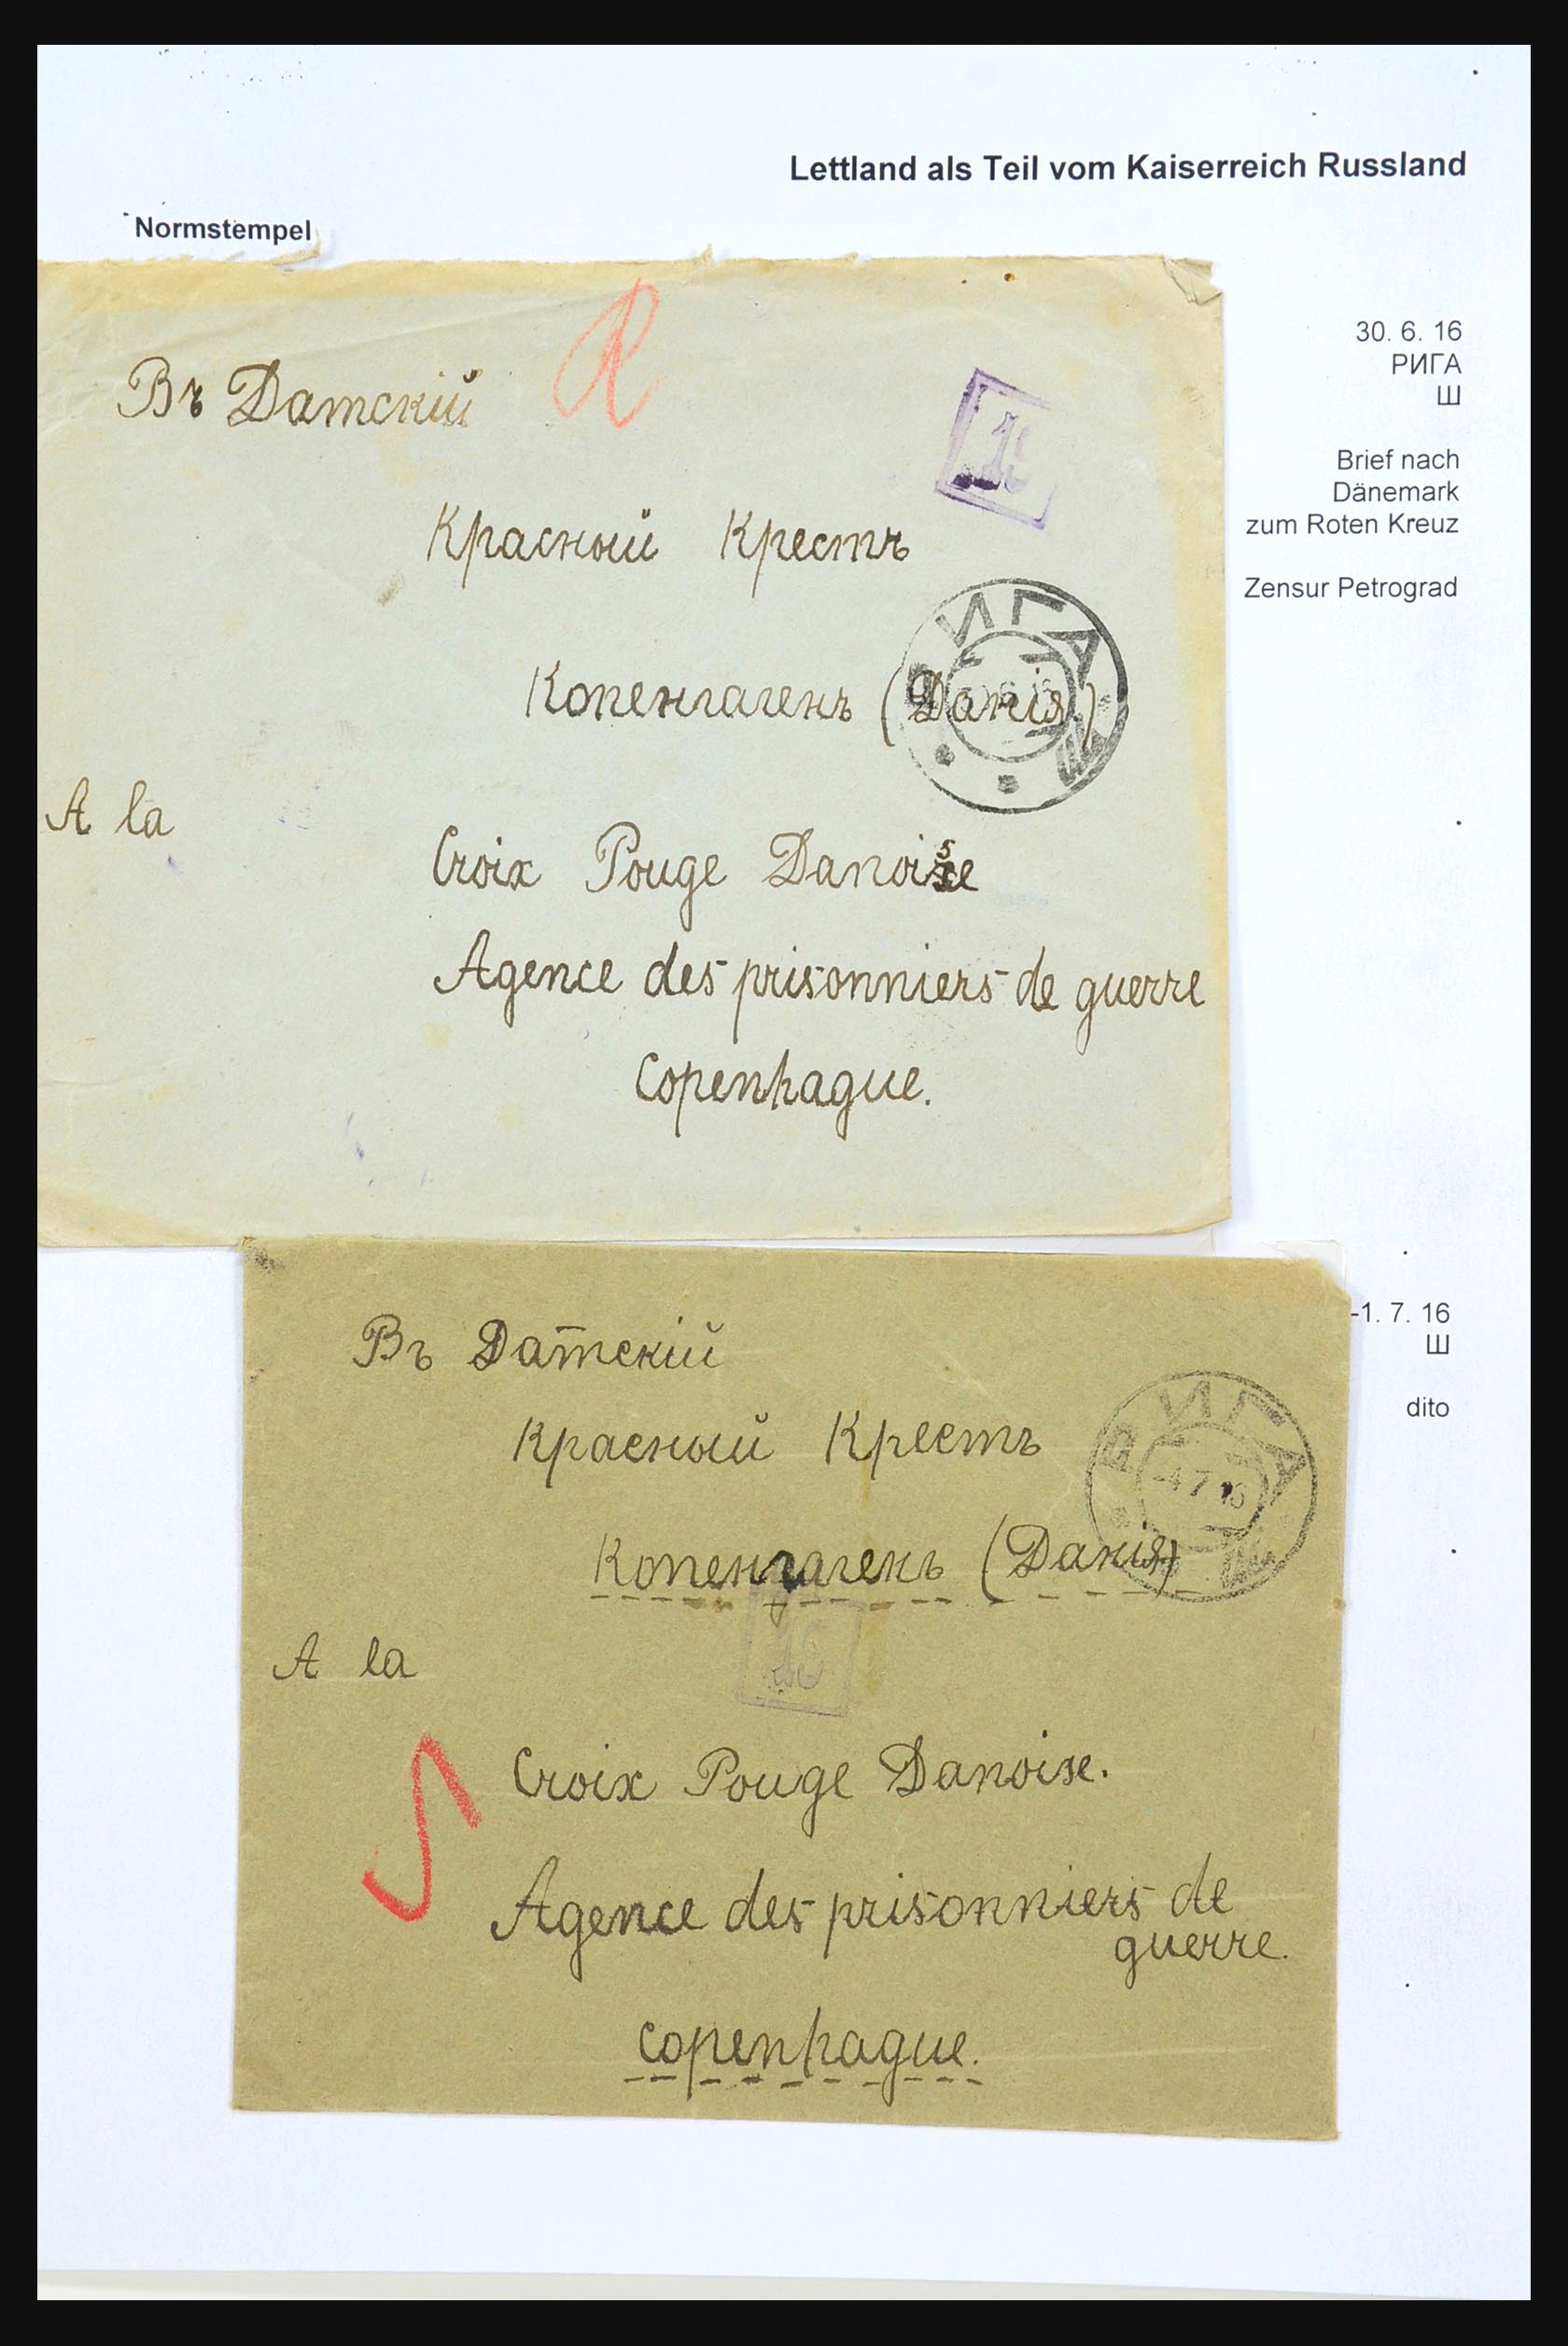 Lettland als Teil vom Kaiserreich Russland
Normstempel
30. 6. 16
РИГА
Ш
Brief nach
Dänemark
zum Roten Kreuz
Zensur Petrograd
Въ Датскій
R
Красный Крестъ
РИГА
Копенгагенъ (Данія)
Ш
A la
Croix Pouge Danoise
Agence des prisonniers de guerre
Copenhague.
-1. 7. 16
Ш
dito
Въ Датскій
Красный Крестъ
РИГА
-4 7 16
Ш
Копенгагенъ (Данія)
A la
Croix Pouge Danoise.
Agence des prisonniers de
guerre.
Copenhague.